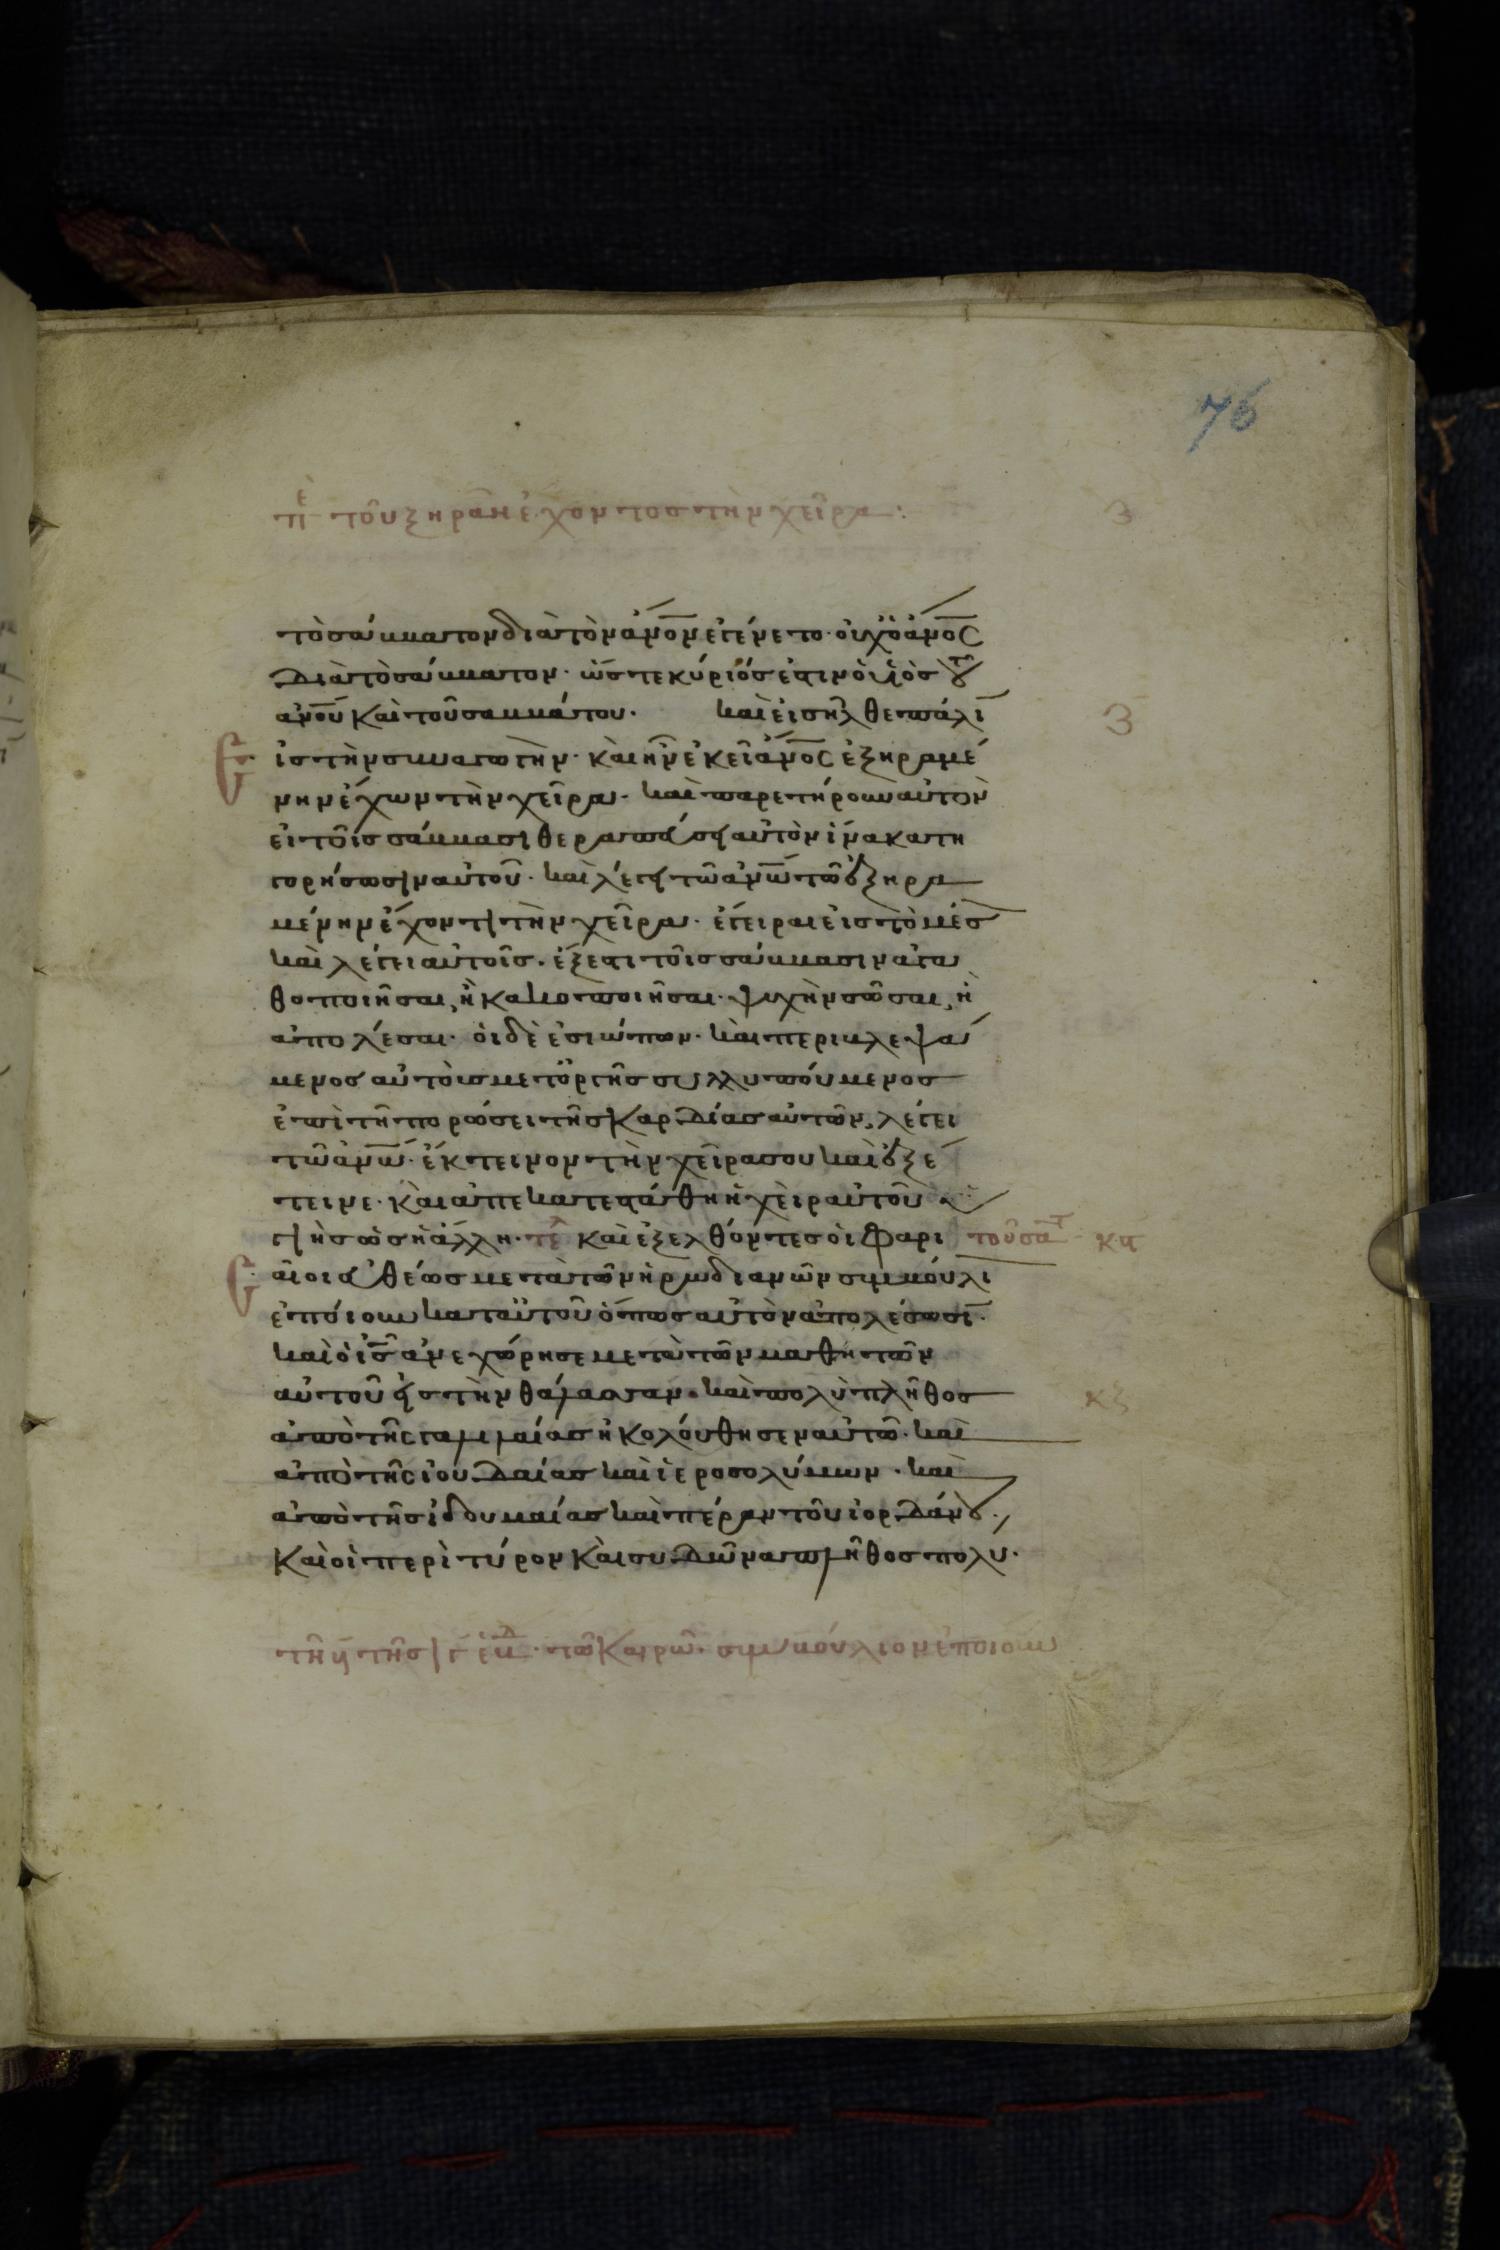 76
πε τοῦ ξηρὰν ἔχοντος τὴν χεῖρα:
τὸ σάββατον διὰ τὸν ἄνον ἐγένετο· οὐχ ὁ ἄνος
διὰ τὸ σάββατον· ὥστε κύριός ἐστιν ὁ υἱὸς τοῦ
ανου καὶ τοῦ σαββάτου· καὶ εἰσῆλθε πάλι
Εἰς τὴν συναγωγὴν· καὶ ἦν ἐκεῖ ἄνος ἐξηραμέ
νην ἔχων τὴν χεῖρα· καὶ παρετήρουν αὐτὸν
εἰ τοῖς σάββασι θεραπεύσει αὐτὸν ἵνα κατη
γορήσωσιν αὐτοῦ· καὶ λέγει τῶ ἀνω τῶ ἐξηρα
μένην ἔχοντι τὴν χεῖρα· ἔγειραι εἰς τὸ μέσ
καὶ λέγει αὐτοῖς· ἔξεστι τοῖς σάββασιν ἀγα
θοποιῆσαι, ἢ κακοποιῆσαι· ψυχὴν σῶσαι, ἢ
ἀπολέσαι· οἱ δὲ ἐσιώπων· καὶ περιβλεψά
μενος αὐτοὺς μετ ὀργῆς συλλυπούμενος
ἐπὶ τῆ πορώσει τῆς καρδίας αὐτῶν, λέγει
τῶ ἀνω· ἔκτεινον τὴν χεῖρα σου καὶ ἐξέ
τεινε· καὶ ἀπεκατεστάθη ἡ χεὶρ αὐτοῦ
ὑγιὴς ὡς ἡ ἄλλη· τε καὶ ἐξελθόντες οἱ φαρι τοῦ σα κϛ
Εαῖοι εὐθέως μετὰ τῶν ἡρωδιανῶν συμβούλι
ἐποίουν κατ αὐτοῦ ὅπως αὐτὸν ἀπολέσωσι·
καὶ ὁ ις ἀνεχώρησε μετὰ τῶν μαθητῶν
αὐτοῦ εἰς τὴν θάλασσαν· καὶ πολὺ πλῆθος κζ
ἀπὸ τῆς γαλιλαίας ἠκολούθησεν αὐτῶ· καὶ
ἀπὸ τῆς ἰουδαίας καὶ ἱεροσολύμων· καὶ
ἀπὸ τῆς ἰδουμαίας καὶ πέραν τοῦ ἰορδάνου·
καὶ οἱ περὶ τύρον καὶ συδῶνα πλῆθος πολυ·
τῶ καιρῶ· συμβούλιον ἐποίουν